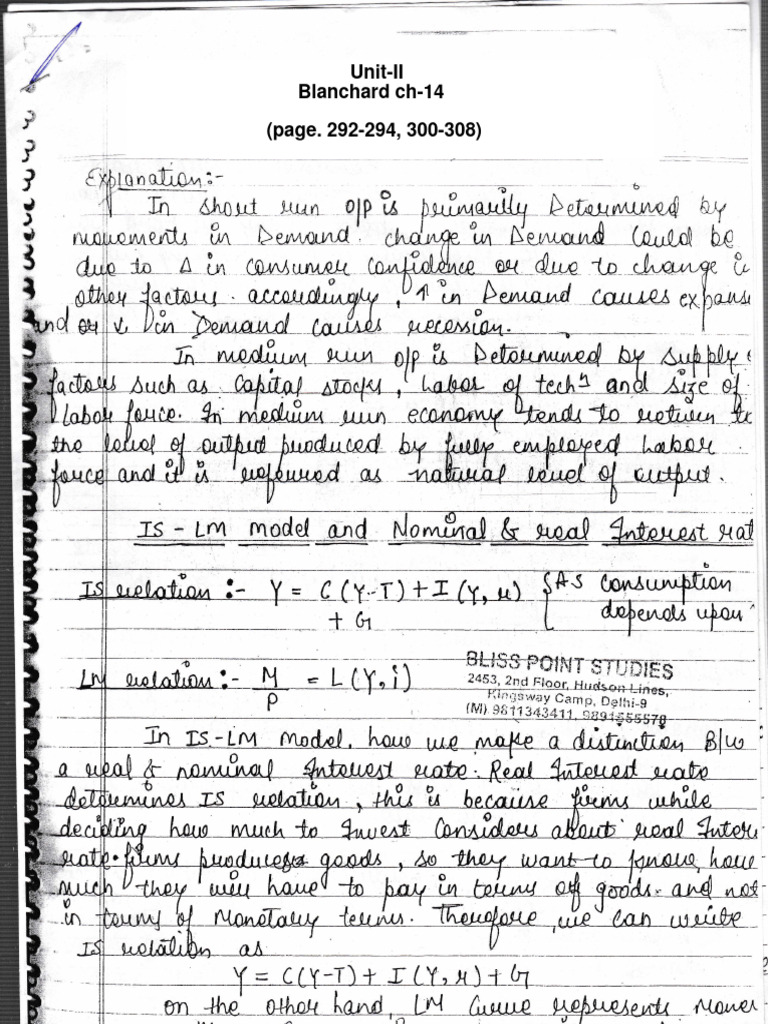 Unit-II
Blanchard ch-14
(page. 292-294, 300-308)
Explanation:-
In short run o/p is primarily Determined by
movements in Demand. change in Demand Could be
due to Δ in consumer confidence or due to change i
other factors. accordingly, ↑ in Demand causes expans
and or ↓ in Demand causes recession.
In medium run o/p is Determined by supply
factors such as Capital stocks, Labor of techn and size of
Labor force. In medium run economy tends to return to
the level of output produced by fully employed Labor
force and it is referred as natural level of output.
IS - LM model and Nominal & real Interest rat
IS relation :- Y = C(Y-T) + I(Y, r) { As consumption
+ G depends upon
LM relation :- M/P = L(Y, i)
BLISS POINT STUDIES
2453, 2nd Floor, Hudson Lines,
Kingsway Camp, Delhi-9
(M) 9811343411, 9891555578
In IS-LM model, how we make a distinction B/w
a real & nominal Interest rate. Real Interest rate
determines IS relation, this is because firms while
deciding how much to Invest Considers about real Inter
rate. firms produces goods, so they want to know, how
much they will have to pay in terms of goods. and not
in terms of Monetary terms. Therefore, we can write
IS relation as
Y = C(Y-T) + I(Y, r) + G
on the other hand, LM Curve represents Money